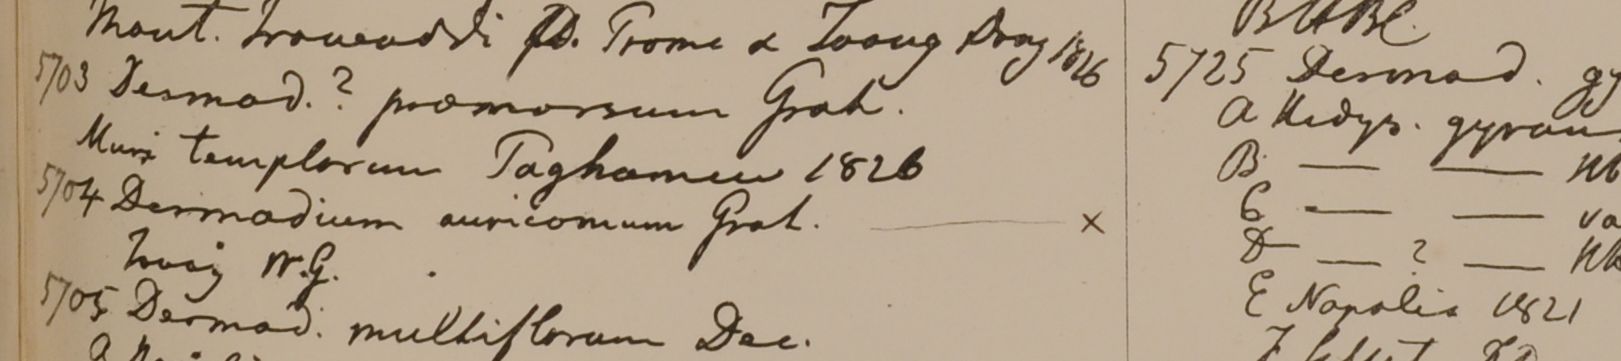 Mont. Irawaddi Pr. Prome & Toong Dong 1826
5703 Desmod.? præmorsum Grah.
Muri templorum Taghamew 1826
5704 Desmodium auricomum Grah. x
W.G.
5705 Desmod. multiflorum Dec.
5725 Desmod. gy
A Hedys. gyran
B — —
C — — va
D — ? —
E Napalia 1821